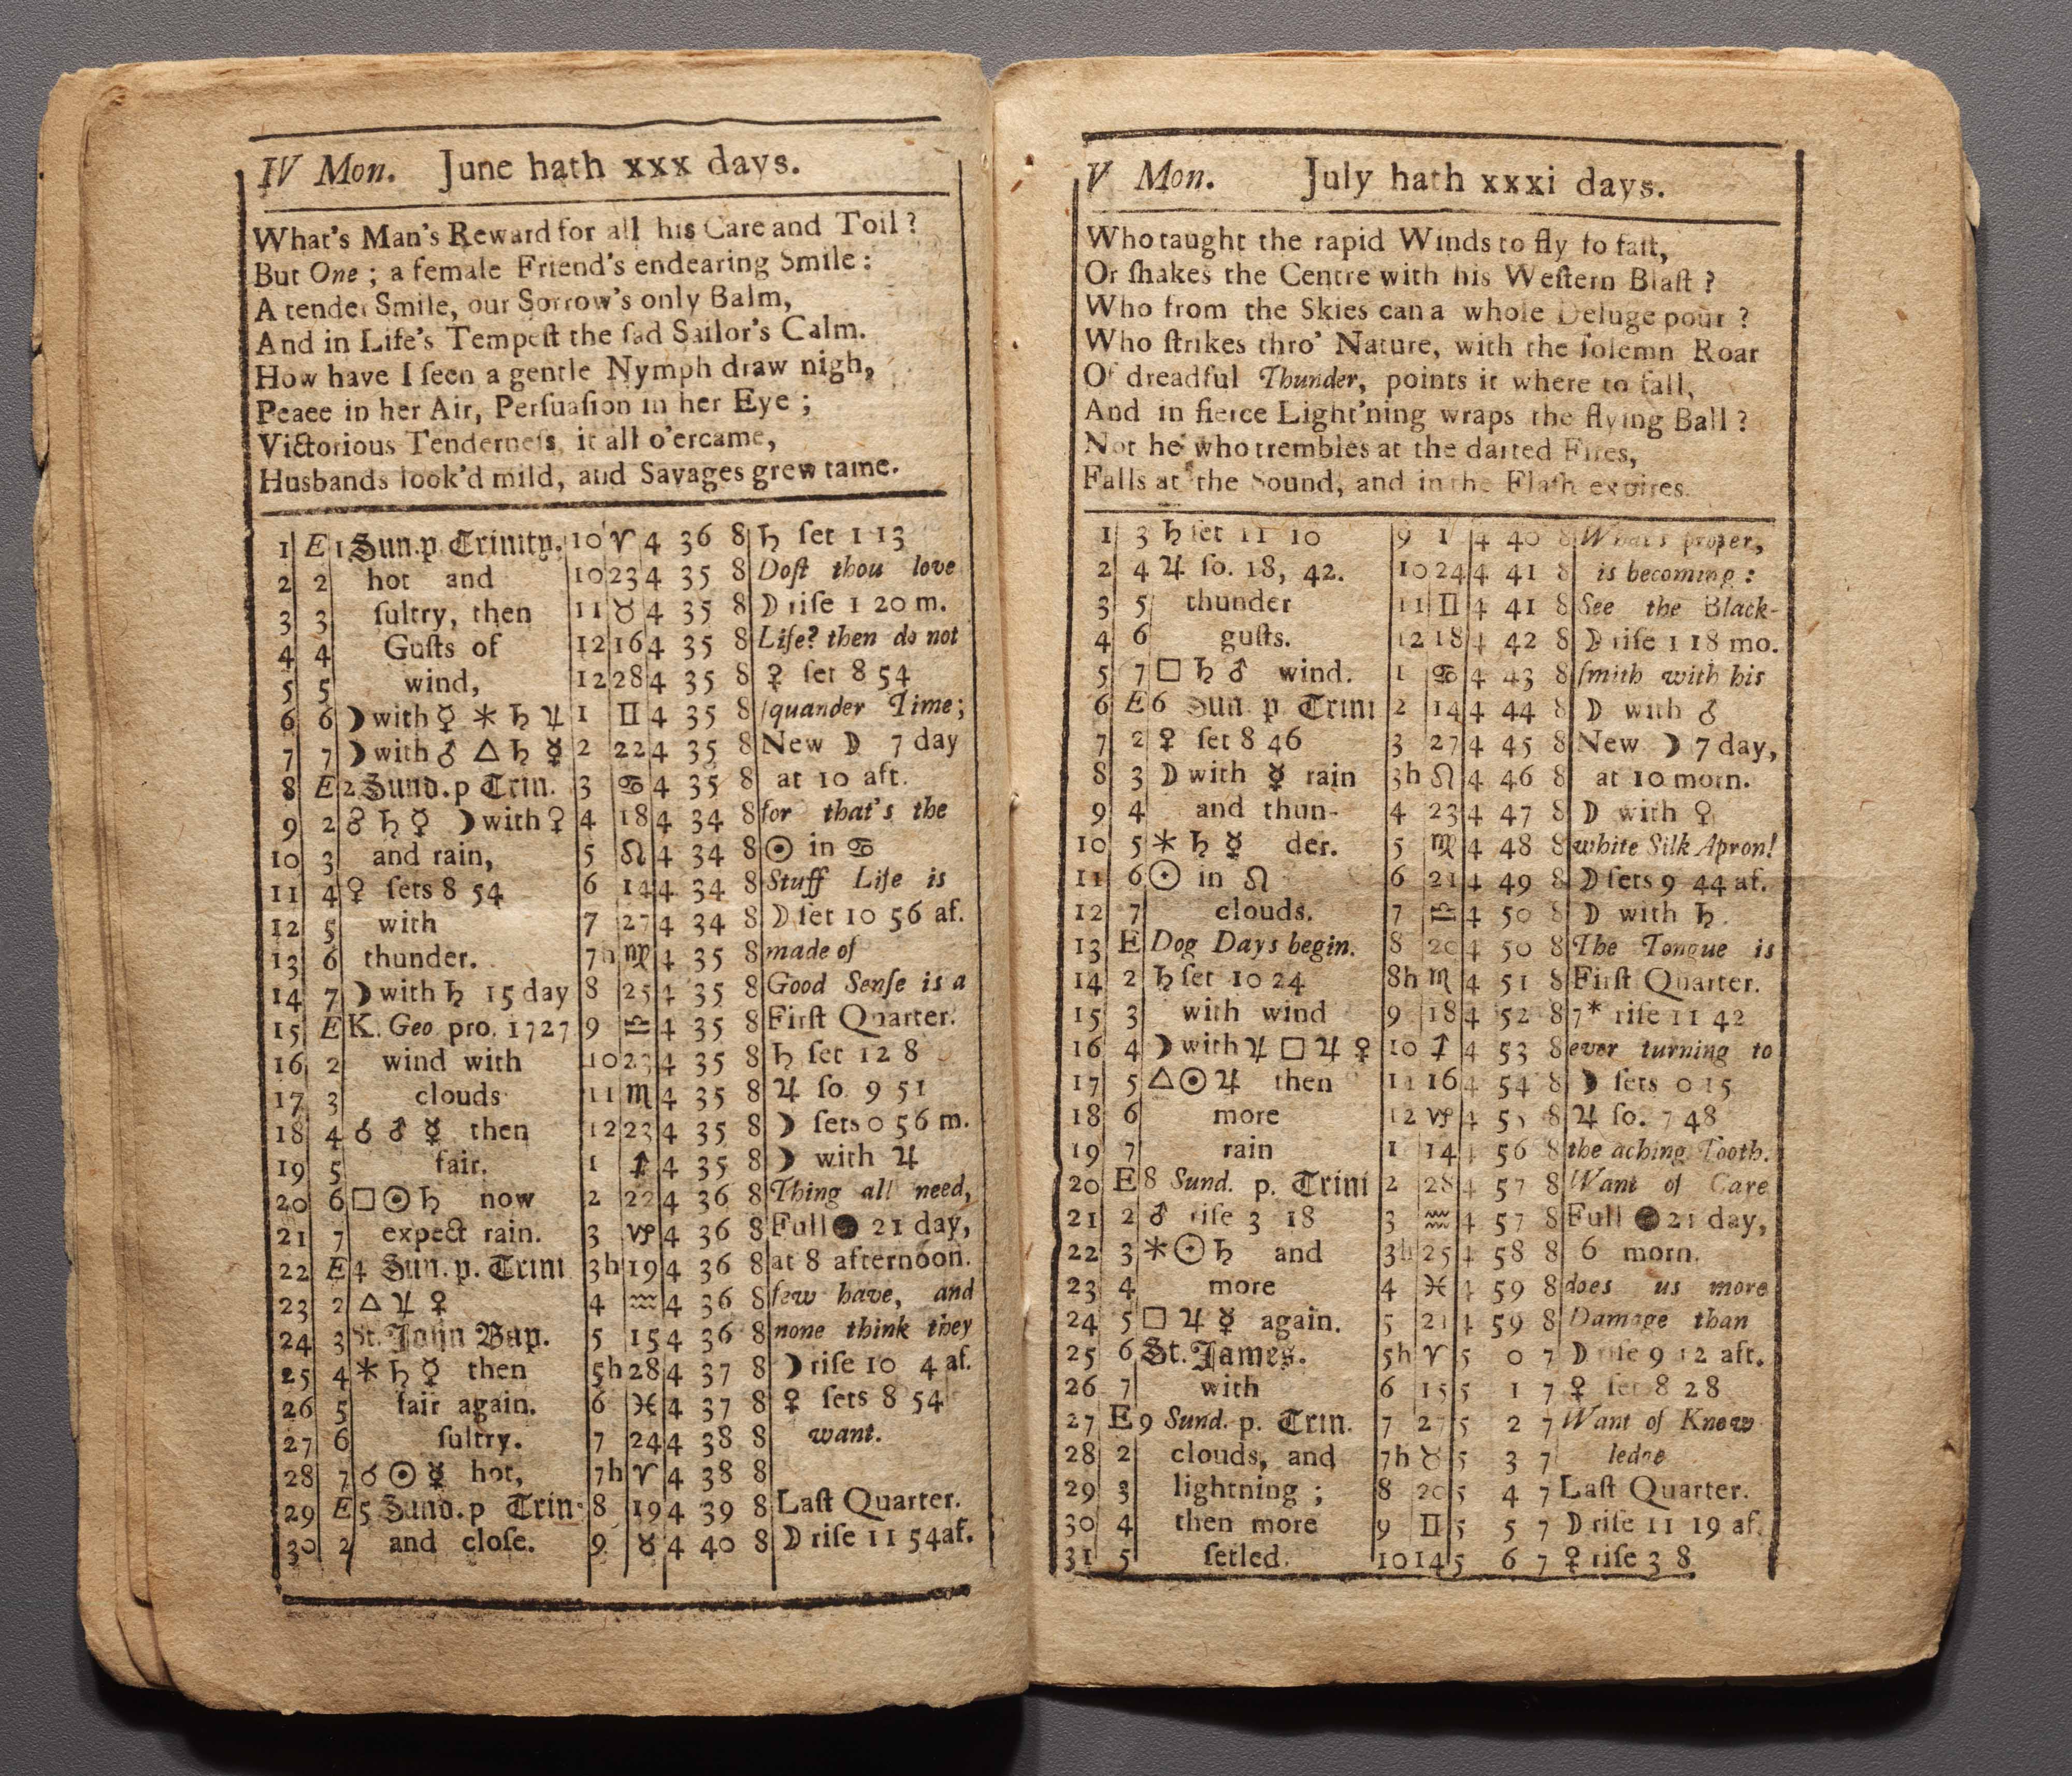 IV Mon. June hath xxx days.
What's Man's Reward for all his Care and Toil ?
But One ; a female Friend's endearing Smile :
A tender Smile, our Sorrow's only Balm,
And in Life's Tempeſt the ſad Sailor's Calm.
How have I ſeen a gentle Nymph draw nigh,
Peaee in her Air, Perſuaſion in her Eye ;
Victorious Tenderneſs, it all o'ercame,
Husbands look'd mild, and Savages grew tame.
1 E 1 Sun.p. Trinity. 10 ♈ 4 36 8 ♄ ſet 1 13
2 2 hot and 10 23 4 35 8 Doſt thou love
3 3 ſultry, then 11 ♉ 4 35 8 ☽ riſe 1 20 m.
4 4 Guſts of 12 16 4 35 8 Life? then do not
5 5 wind, 12 28 4 35 8 ♀ ſet 8 54
6 6 ☽ with ☿ ⚹ ♄ ♃ 1 ♊ 4 35 8 ſquander Time;
7 7 ☽ with ♂ △ ♄ ☿ 2 22 4 35 8 New ☽ 7 day
8 E 2 Sund.p Trin. 3 ♋ 4 35 8 at 10 aft.
9 2 ♂ ♄ ☿ ☽ with ♀ 4 18 4 34 8 for that's the
10 3 and rain, 5 ♌ 4 34 8 ☉ in ♋
11 4 ♀ ſets 8 54 6 14 4 34 8 Stuff Life is
12 5 with 7 27 4 34 8 ☽ ſet 10 56 af.
13 6 thunder. 7h ♍ 4 35 8 made of
14 7 ☽ with ♄ 15 day 8 25 4 35 8 Good Senſe is a
15 E K. Geo pro. 1727 9 ♎ 4 35 8 Firſt Quarter.
16 2 wind with 10 23 4 35 8 ♄ ſet 12 8
17 3 clouds 11 ♏ 4 35 8 ♃ ſo. 9 51
18 4 ☌ ♂ ☿ then 12 23 4 35 8 ☽ ſets 0 56 m.
19 5 fair. 1 ♐ 4 35 8 ☽ with ♃
20 6 □ ☉ ♄ now 2 22 4 36 8 Thing all need,
21 7 expect rain. 3 ♑ 4 36 8 Full ● 21 day,
22 E 4 Sun. p. Trini 3h 19 4 36 8 at 8 afternoon.
23 2 △ ♃ ♀ 4 ♒ 4 36 8 few have, and
24 3 St. John Bap. 5 15 4 36 8 none think they
25 4 ⚹ ♄ ☿ then 5h 28 4 37 8 ☽ riſe 10 4 af.
26 5 fair again. 6 ♓ 4 37 8 ♀ ſets 8 54
27 6 ſultry. 7 24 4 38 8 want.
28 7 ☌ ☉ ☿ hot, 7h ♈ 4 38 8
29 E 5 Sund.p Trin 8 19 4 39 8 Laſt Quarter.
30 2 and cloſe. 9 ♉ 4 40 8 ☽ riſe 11 54 af.
V Mon. July hath xxxi days.
Who taught the rapid Winds to fly ſo faſt,
Or ſhakes the Centre with his Weſtern Blaſt ?
Who from the Skies can a whole Deluge pour ?
Who ſtrikes thro' Nature, with the ſolemn Roar
Of dreadful Thunder, points it where to fall,
And in fierce Light'ning wraps the flying Ball ?
Not he who trembles at the darted Fires,
Falls at the Sound, and in the Flaſh expires.
1 3 ♄ ſet 11 10 9 1 4 40 8 What's proper,
2 4 ♃ ſo. 18, 42. 10 24 4 41 8 is becoming :
3 5 thunder 11 ♊ 4 41 8 See the Black-
4 6 guſts. 12 18 4 42 8 ☽ riſe 1 18 mo.
5 7 □ ♄ ♂ wind. 1 ♋ 4 43 8 ſmith with his
6 E 6 Sun. p. Trini 2 14 4 44 8 ☽ with ♂
7 2 ♀ ſet 8 46 3 27 4 45 8 New ☽ 7 day,
8 3 ☽ with ☿ rain 3h ♌ 4 46 8 at 10 morn.
9 4 and thun- 4 23 4 47 8 ☽ with ♀
10 5 ⚹ ♄ ☿ der. 5 ♍ 4 48 8 white Silk Apron!
11 6 ☉ in ♌ 6 21 4 49 8 ☽ ſets 9 44 af.
12 7 clouds. 7 ♎ 4 50 8 ☽ with ♄.
13 E Dog Days begin. 8 20 4 50 8 The Tongue is
14 2 ♄ ſet 10 24 8h ♏ 4 51 8 Firſt Quarter.
15 3 with wind 9 18 4 52 8 7* riſe 11 42
16 4 ☽ with ♃ □ ♃ ♀ 10 ♐ 4 53 8 ever turning to
17 5 △ ☉ ♃ then 11 16 4 54 8 ☽ ſets 0 15
18 6 more 12 ♑ 4 55 8 ♃ ſo. 7 48
19 7 rain 1 14 4 56 8 the aching Tooth.
20 E 8 Sund. p. Trini 2 28 4 57 8 Want of Care
21 2 ♂ riſe 3 18 3 ♒ 4 57 8 Full ● 21 day,
22 3 ⚹ ☉ ♄ and 3h 25 4 58 8 6 morn.
23 4 more 4 ♓ 4 59 8 does us more
24 5 □ ♃ ☿ again. 5 21 4 59 8 Damage than
25 6 St. James. 5h ♈ 5 0 7 ☽ riſe 9 12 aft.
26 7 with 6 15 5 1 7 ♀ ſet 8 28
27 E 9 Sund. p. Trin. 7 27 5 2 7 Want of Know
28 2 clouds, and 7h ♉ 5 3 7 ledge
29 3 lightning ; 8 20 5 4 7 Laſt Quarter.
30 4 then more 9 ♊ 5 5 7 ☽ riſe 11 19 af.
31 5 ſetled. 10 14 5 6 7 ♀ riſe 3 8